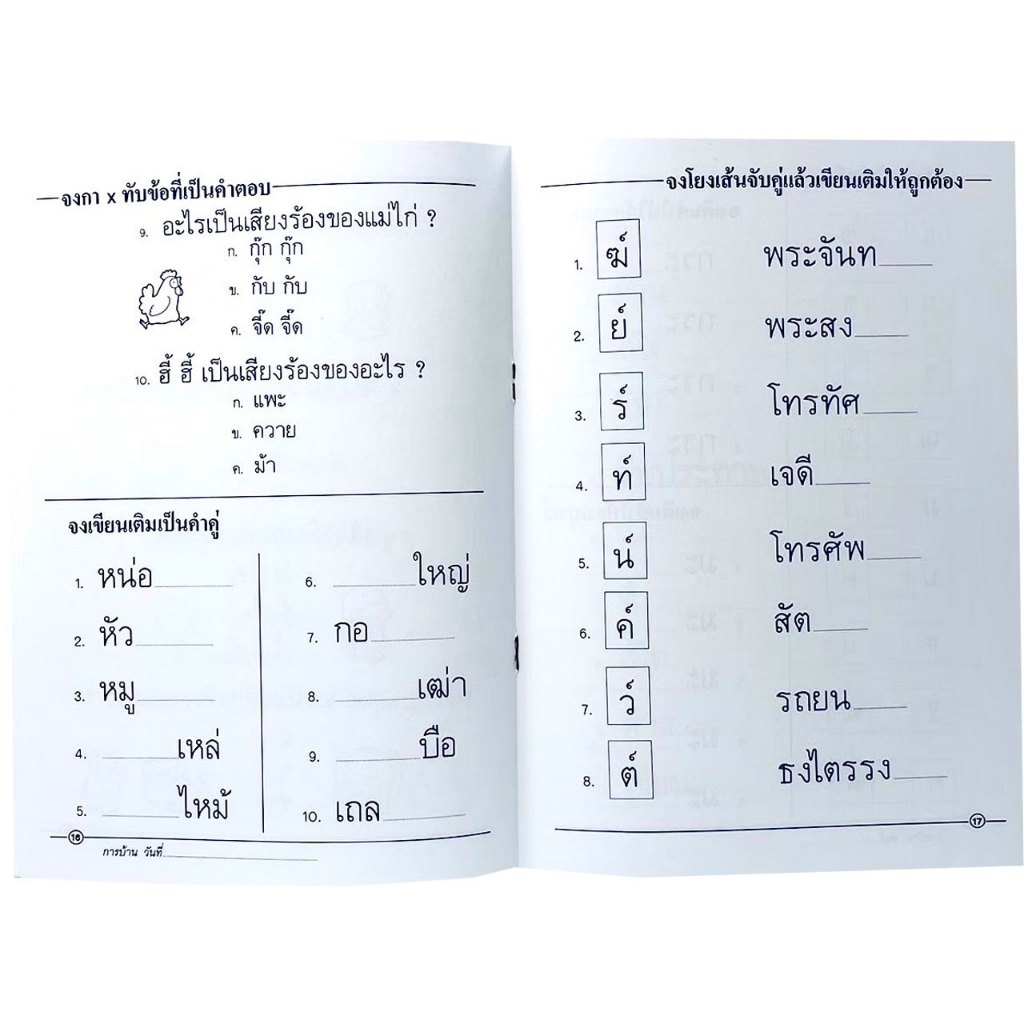 จงกา x ทับข้อที่เป็นคำตอบ
9. อะไรเป็นเสียงร้องของแม่ไก่ ?
ก. กุ๊ก กุ๊ก
ข. กับ กับ
ค. จี๊ด จี๊ด
10. ฮี้ ฮี้ เป็นเสียงร้องของอะไร ?
ก. แพะ
ข. ควาย
ค. ม้า
จงเขียนเติมเป็นคำคู่
1. หน่อ
2. หัว
3. หมู
4. เหล่
5. ไหม้
6. ใหญ่
7. กอ
8. เฒ่า
9. บือ
10. เถล
16
การบ้าน วันที่
จงโยงเส้นจับคู่แล้วเขียนเติมให้ถูกต้อง
1. ฆ์ พระจันท
2. ย์ พระสง
3. ร์ โทรทัศ
4. ท์ เจดี
5. น์ โทรศัพ
6. ค์ สัต
7. ว์ รถยน
8. ต์ ธงไตรรง
17